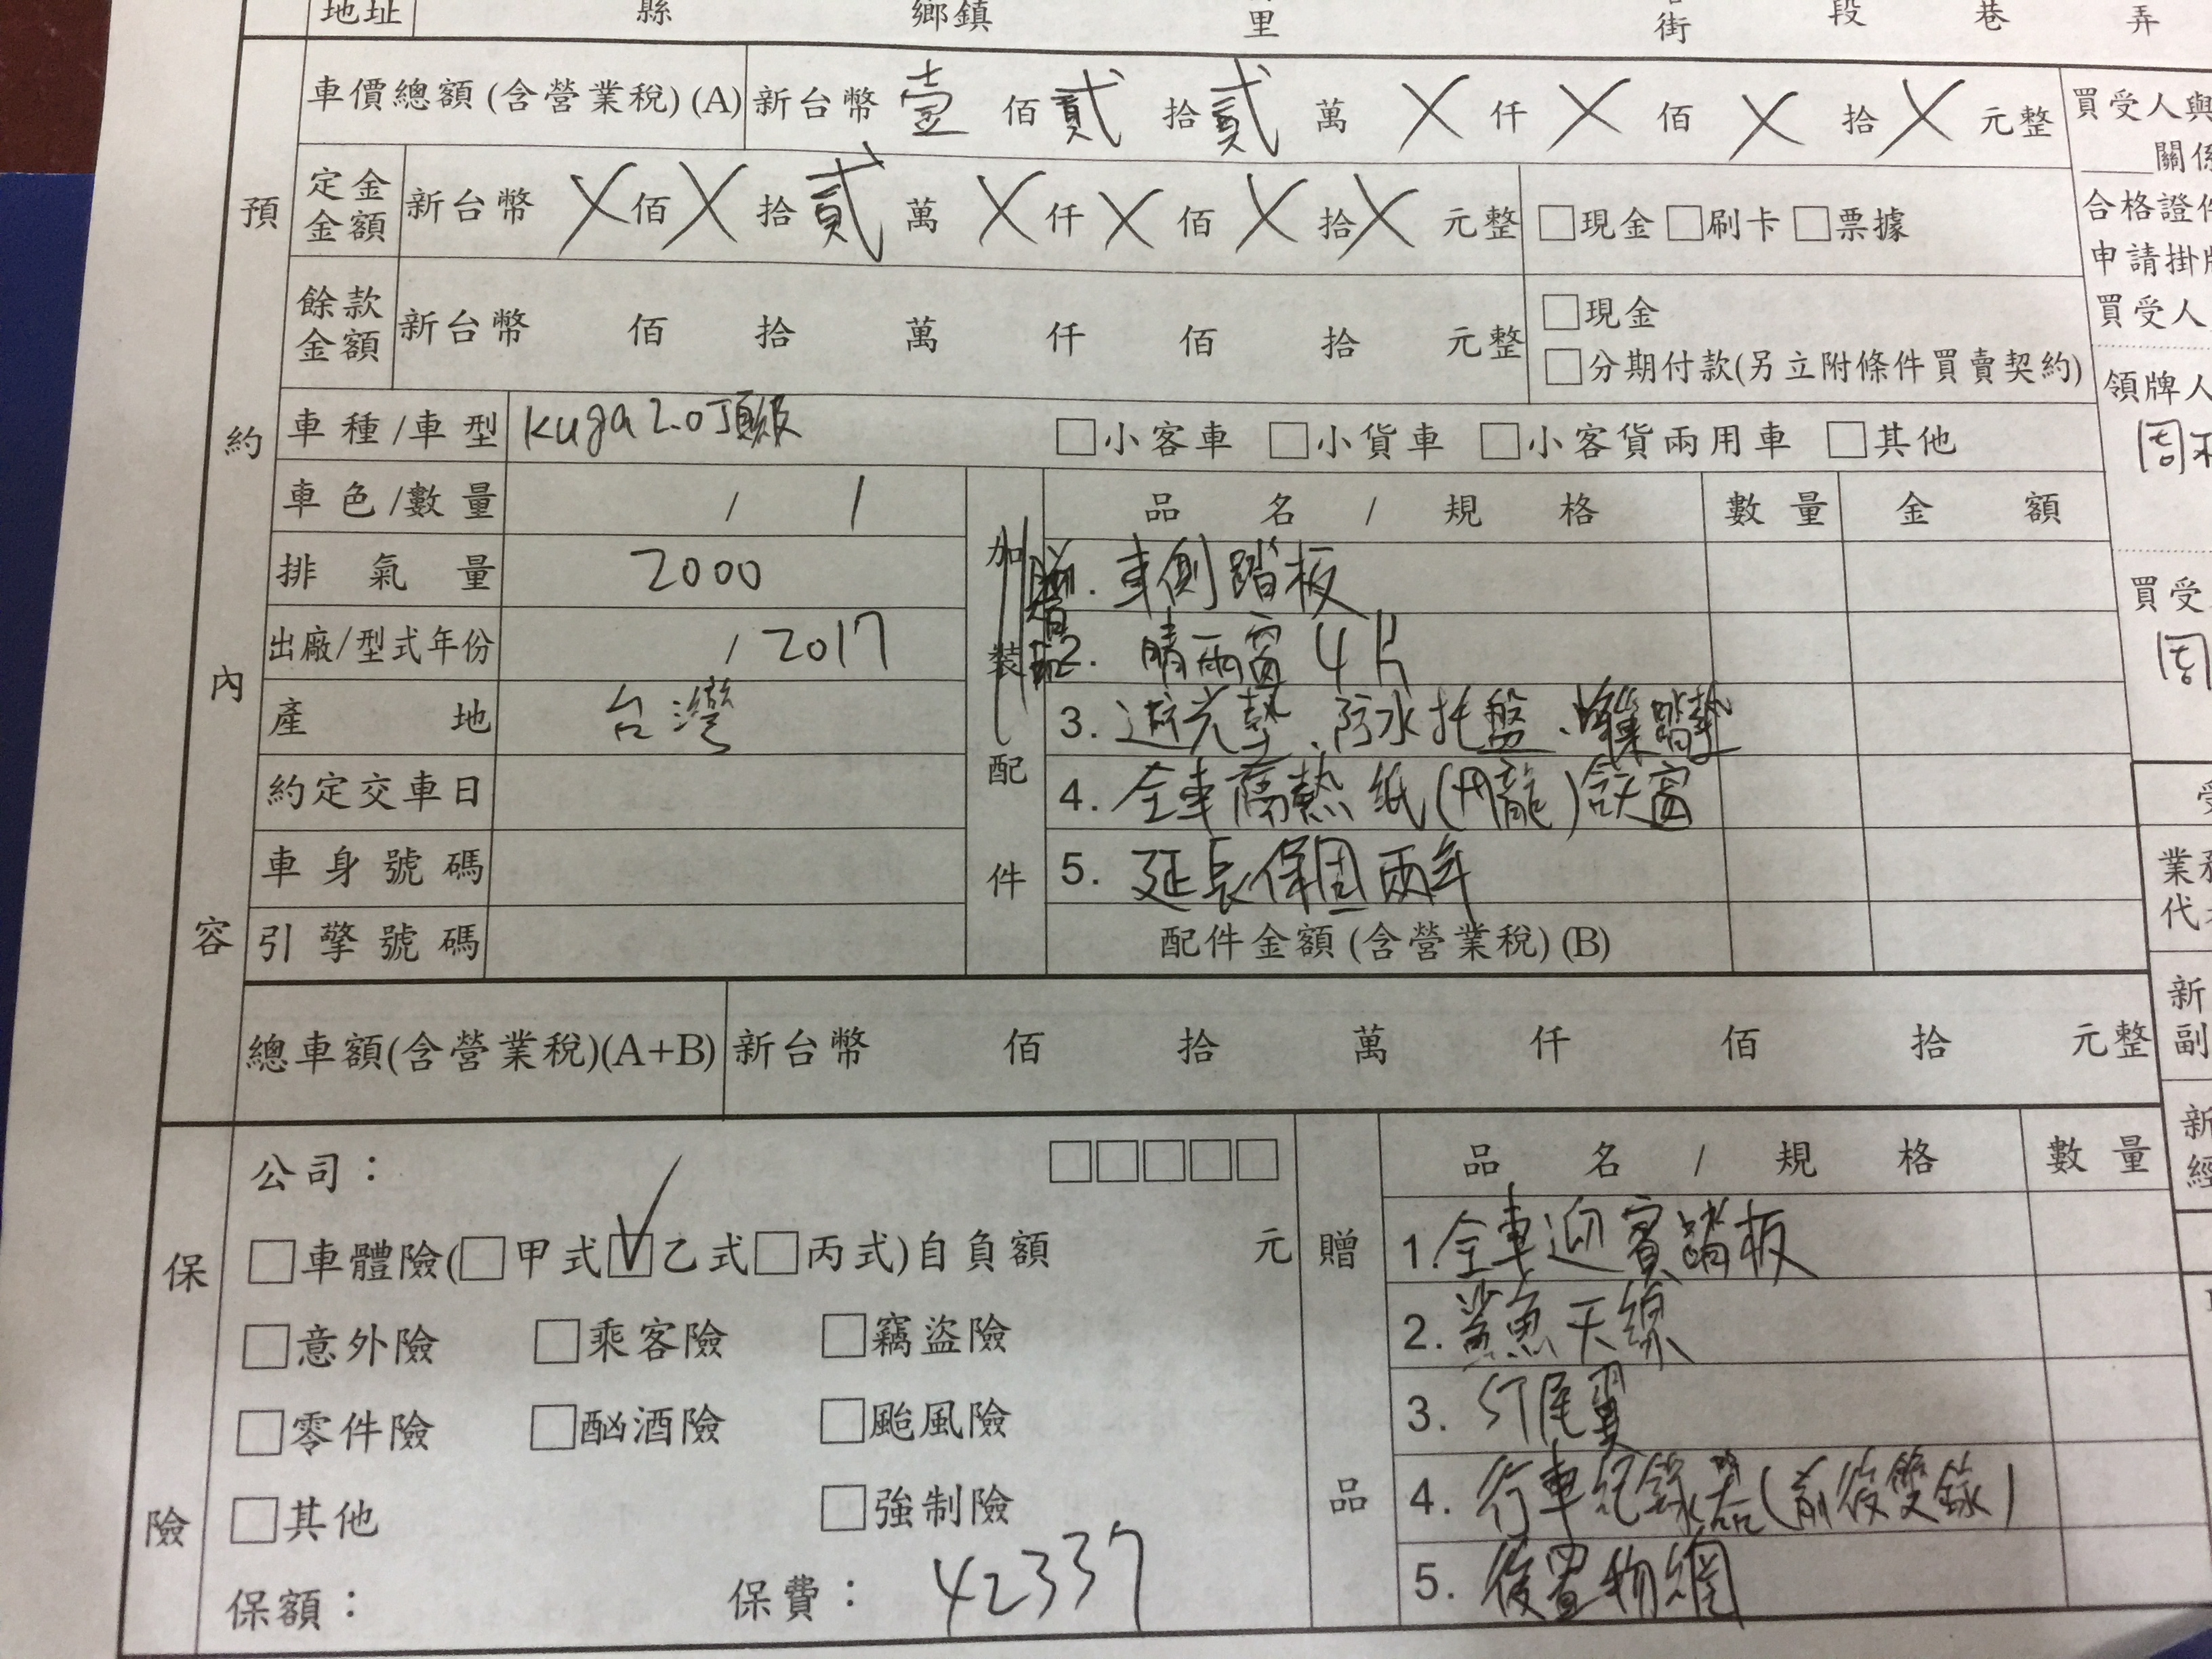 地址 縣 鄉鎮 里 街 段 巷 弄
車價總額(含營業稅)(A) 新台幣 壹 佰 貳 拾 貳 萬 X 仟 X 佰 X 拾 X 元整
買受人與
關係
預約內容
定金金額 新台幣 X 佰 X 拾 貳 萬 X 仟 X 佰 X 拾 X 元整 □現金 □刷卡 □票據
合格證件
申請掛牌
餘款金額 新台幣 佰 拾 萬 仟 佰 拾 元整 □現金
□分期付款(另立附條件買賣契約)
買受人
領牌人
車種/車型 Kuga 2.0頂級 □小客車 □小貨車 □小客貨兩用車 □其他
車色/數量 / 1
加裝配件
品名/規格 數量 金額
排氣量 2000
1. 車側踏板
買受
出廠/型式年份 / 2017
2. 晴雨窗4片
產地 台灣
3. 遮光墊、防水托盤、蜂巢踏墊
約定交車日
4. 全車隔熱紙( )含天窗
車身號碼
5. 延長保固兩年
業務
代
引擎號碼
配件金額(含營業稅)(B)
總車額(含營業稅)(A+B) 新台幣 佰 拾 萬 仟 佰 拾 元整
新
副
新
經
保險
公司： □□□□□
贈品
品名/規格 數量
□車體險(□甲式☑乙式□丙式)自負額 元
1. 全車迎賓踏板
□意外險 □乘客險 □竊盜險
2. 鯊魚天線
□零件險 □酗酒險 □颱風險
3. ST尾翼
□其他 □強制險
4. 行車紀錄器(前後雙錄)
保額： 保費： 42337
5. 後置物網